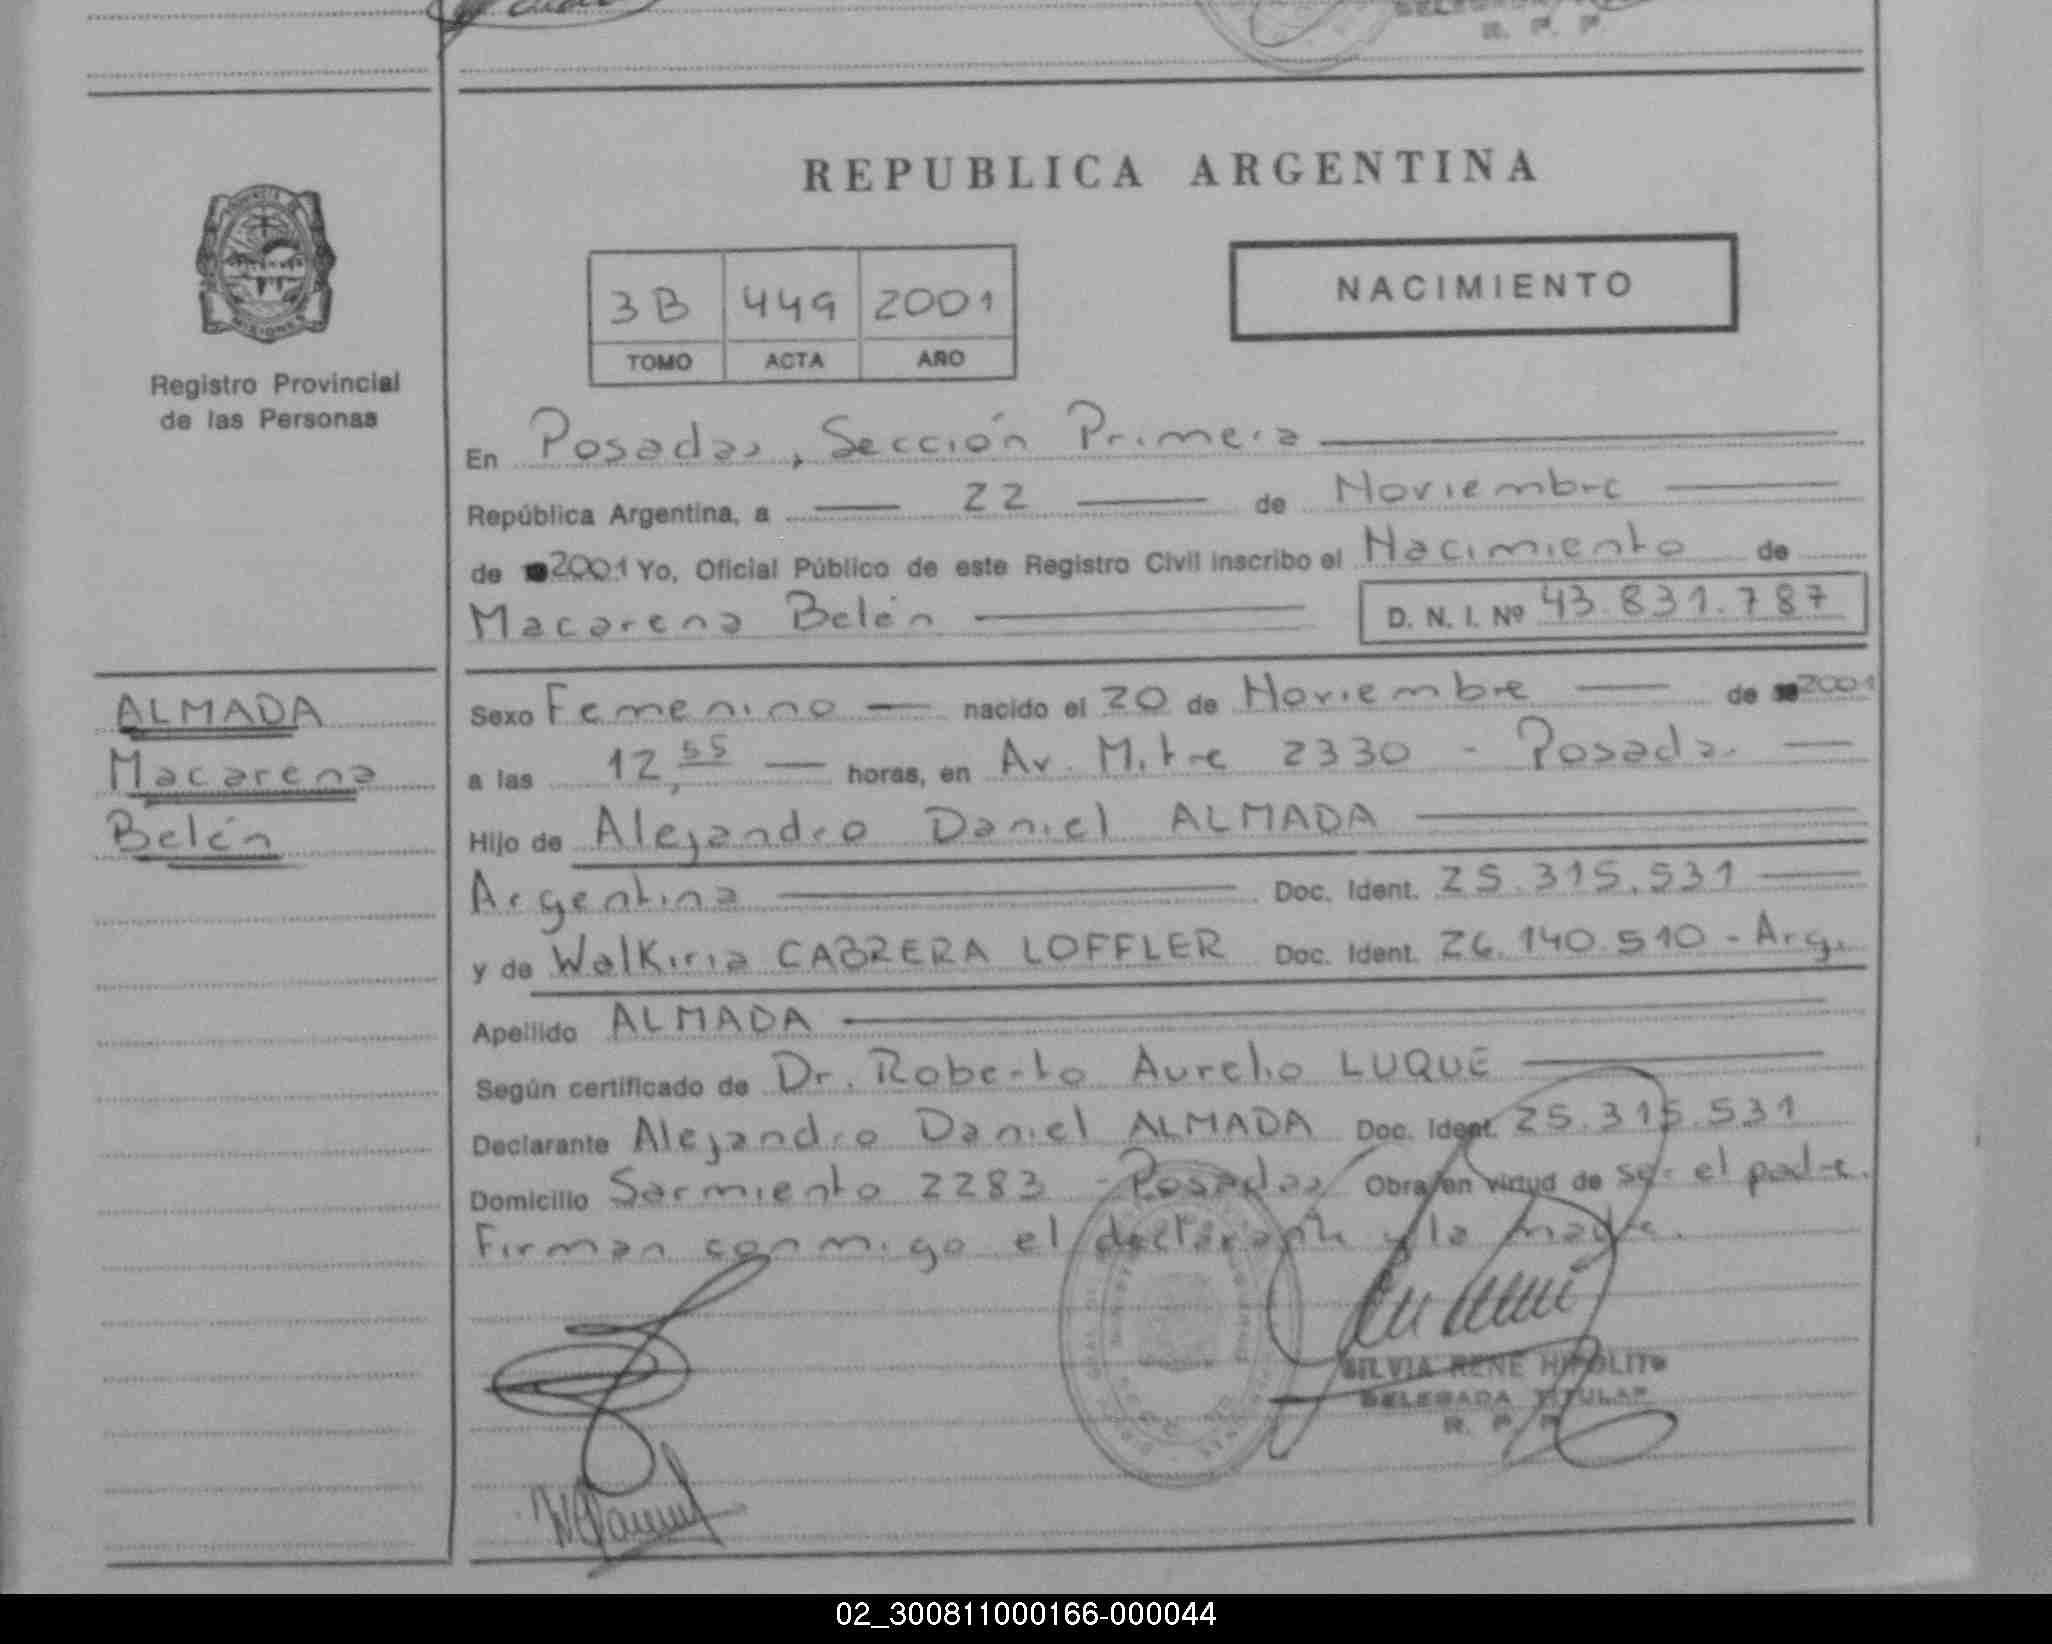 R. P. P.
REPUBLICA ARGENTINA
3B 449 2001
TOMO ACTA AÑO
NACIMIENTO
Registro Provincial
de las Personas
En Posadas, Sección Primera
República Argentina, a 22 de Noviembre
de 2001 Yo, Oficial Público de este Registro Civil inscribo el Nacimiento de
Macarena Belén D. N. I. Nº 43.831.787
ALMADA
Macarena
Belén
Sexo Femenino nacido el 20 de Noviembre de 2001
a las 12,55 horas, en Av. Mitre 2330 - Posadas
Hijo de Alejandro Daniel ALMADA
Argentina Doc. Ident. 25.315.531
y de Walkiria CABRERA LOFFLER Doc. Ident. 26.140.510 - Arg.
Apellido ALMADA
Según certificado de Dr. Roberto Aurelio LUQUE
Declarante Alejandro Daniel ALMADA Doc. Ident. 25.315.531
Domicilio Sarmiento 2283 - Posadas Obra en virtud de ser el padre.
Firman conmigo el declarante y la madre.
SILVIA RENE HIPOLITO
DELEGADA TITULAR
R. P. P.
02_300811000166-000044